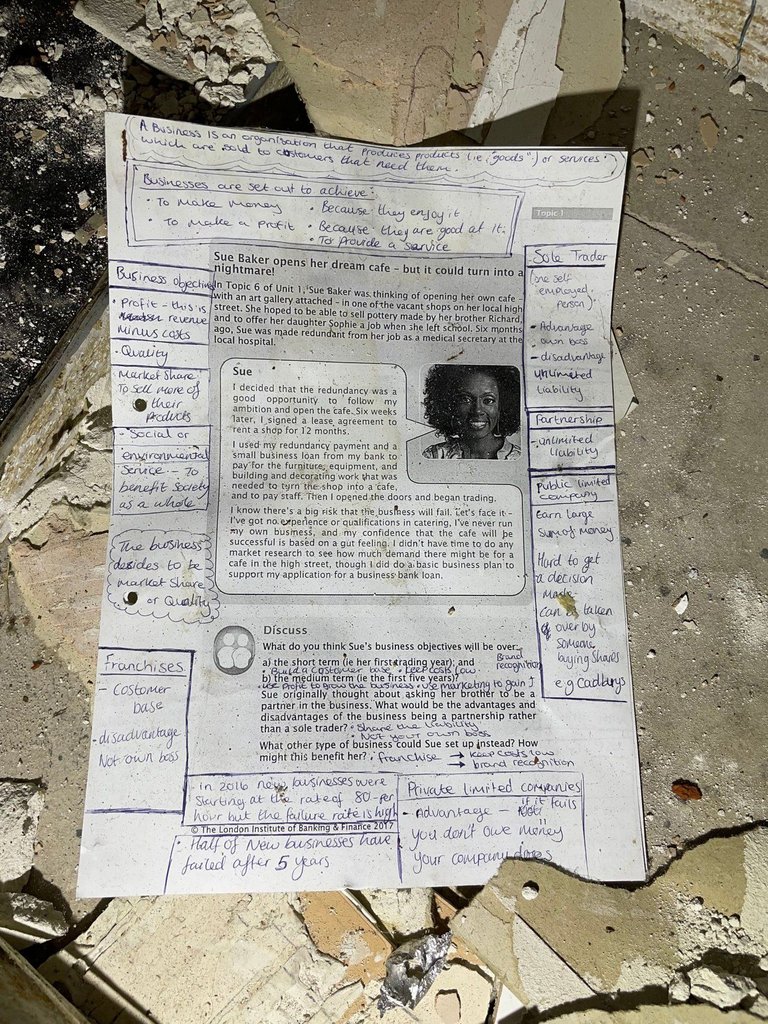 A Business is an organisation that produces products (ie, "goods") or services
which are sold to customers that need them.
Businesses are set out to achieve:
• To Make Money
• To Make a Profit
• Because they enjoy it
• Because they are good at it.
• To Provide a service
Topic 1
Business objectives
• Profit – this is
revenue
minus costs
• Quality
Market share
To sell more of
their
products
• Social or
environmental
Service – To
benefit Society
as a whole
The business
desides to be
market share
or Quality
Franchises
– Costomer
base
- disadvantage
Not own boss
Sue Baker opens her dream cafe – but it could turn into a
nightmare!
In Topic 6 of Unit 1, Sue Baker was thinking of opening her own cafe –
with an art gallery attached – in one of the vacant shops on her local high
street. She hoped to be able to sell pottery made by her brother Richard,
and to offer her daughter Sophie a job when she left school. Six months
ago, Sue was made redundant from her job as a medical secretary at the
local hospital.
Sue
I decided that the redundancy was a
good opportunity to follow my
ambition and open the cafe. Six weeks
later, I signed a lease agreement to
rent a shop for 12 months.
I used my redundancy payment and a
small business loan from my bank to
pay for the furniture, equipment, and
building and decorating work that was
needed to turn the shop into a cafe,
and to pay staff. Then I opened the doors and began trading.
I know there's a big risk that the business will fail. Let's face it –
I've got no experience or qualifications in catering, I've never run
my own business, and my confidence that the cafe will be
successful is based on a gut feeling. I didn't have time to do any
market research to see how much demand there might be for a
cafe in the high street, though I did do a basic business plan to
support my application for a business bank loan.
Discuss
What do you think Sue's business objectives will be over
a) the short term (ie her first trading year); and
• Build a costomer base • keep costs low
Brand
recognition
b) the medium term (ie the first five years)?
• use profit to grow the business • use marketing to gain
Sue originally thought about asking her brother to be a
partner in the business. What would be the advantages and
disadvantages of the business being a partnership rather
than a sole trader? • Share the liability
• Not your own boss
What other type of business could Sue set up instead? How
might this benefit her? • franchise → keep costs low
→ brand recognition
Sole Trader
(one self
employed
person)
- Advantage
own boss
- disadvantage
unlimited
liability
Partnership
- unlimited
liability
Public limited
company
Earn large
sum of money
Hard to get
a decision
made
Can be taken
over by
someone
buying shares
e.g Cadburys
• In 2016 new businesses were
starting at the rate of 80 per
hour but the failure rate is high
© The London Institute of Banking & Finance 2017
• Half of New businesses have
failed after 5 years
Private limited companies
• Advantage – if it fails
you don't owe money
your company does